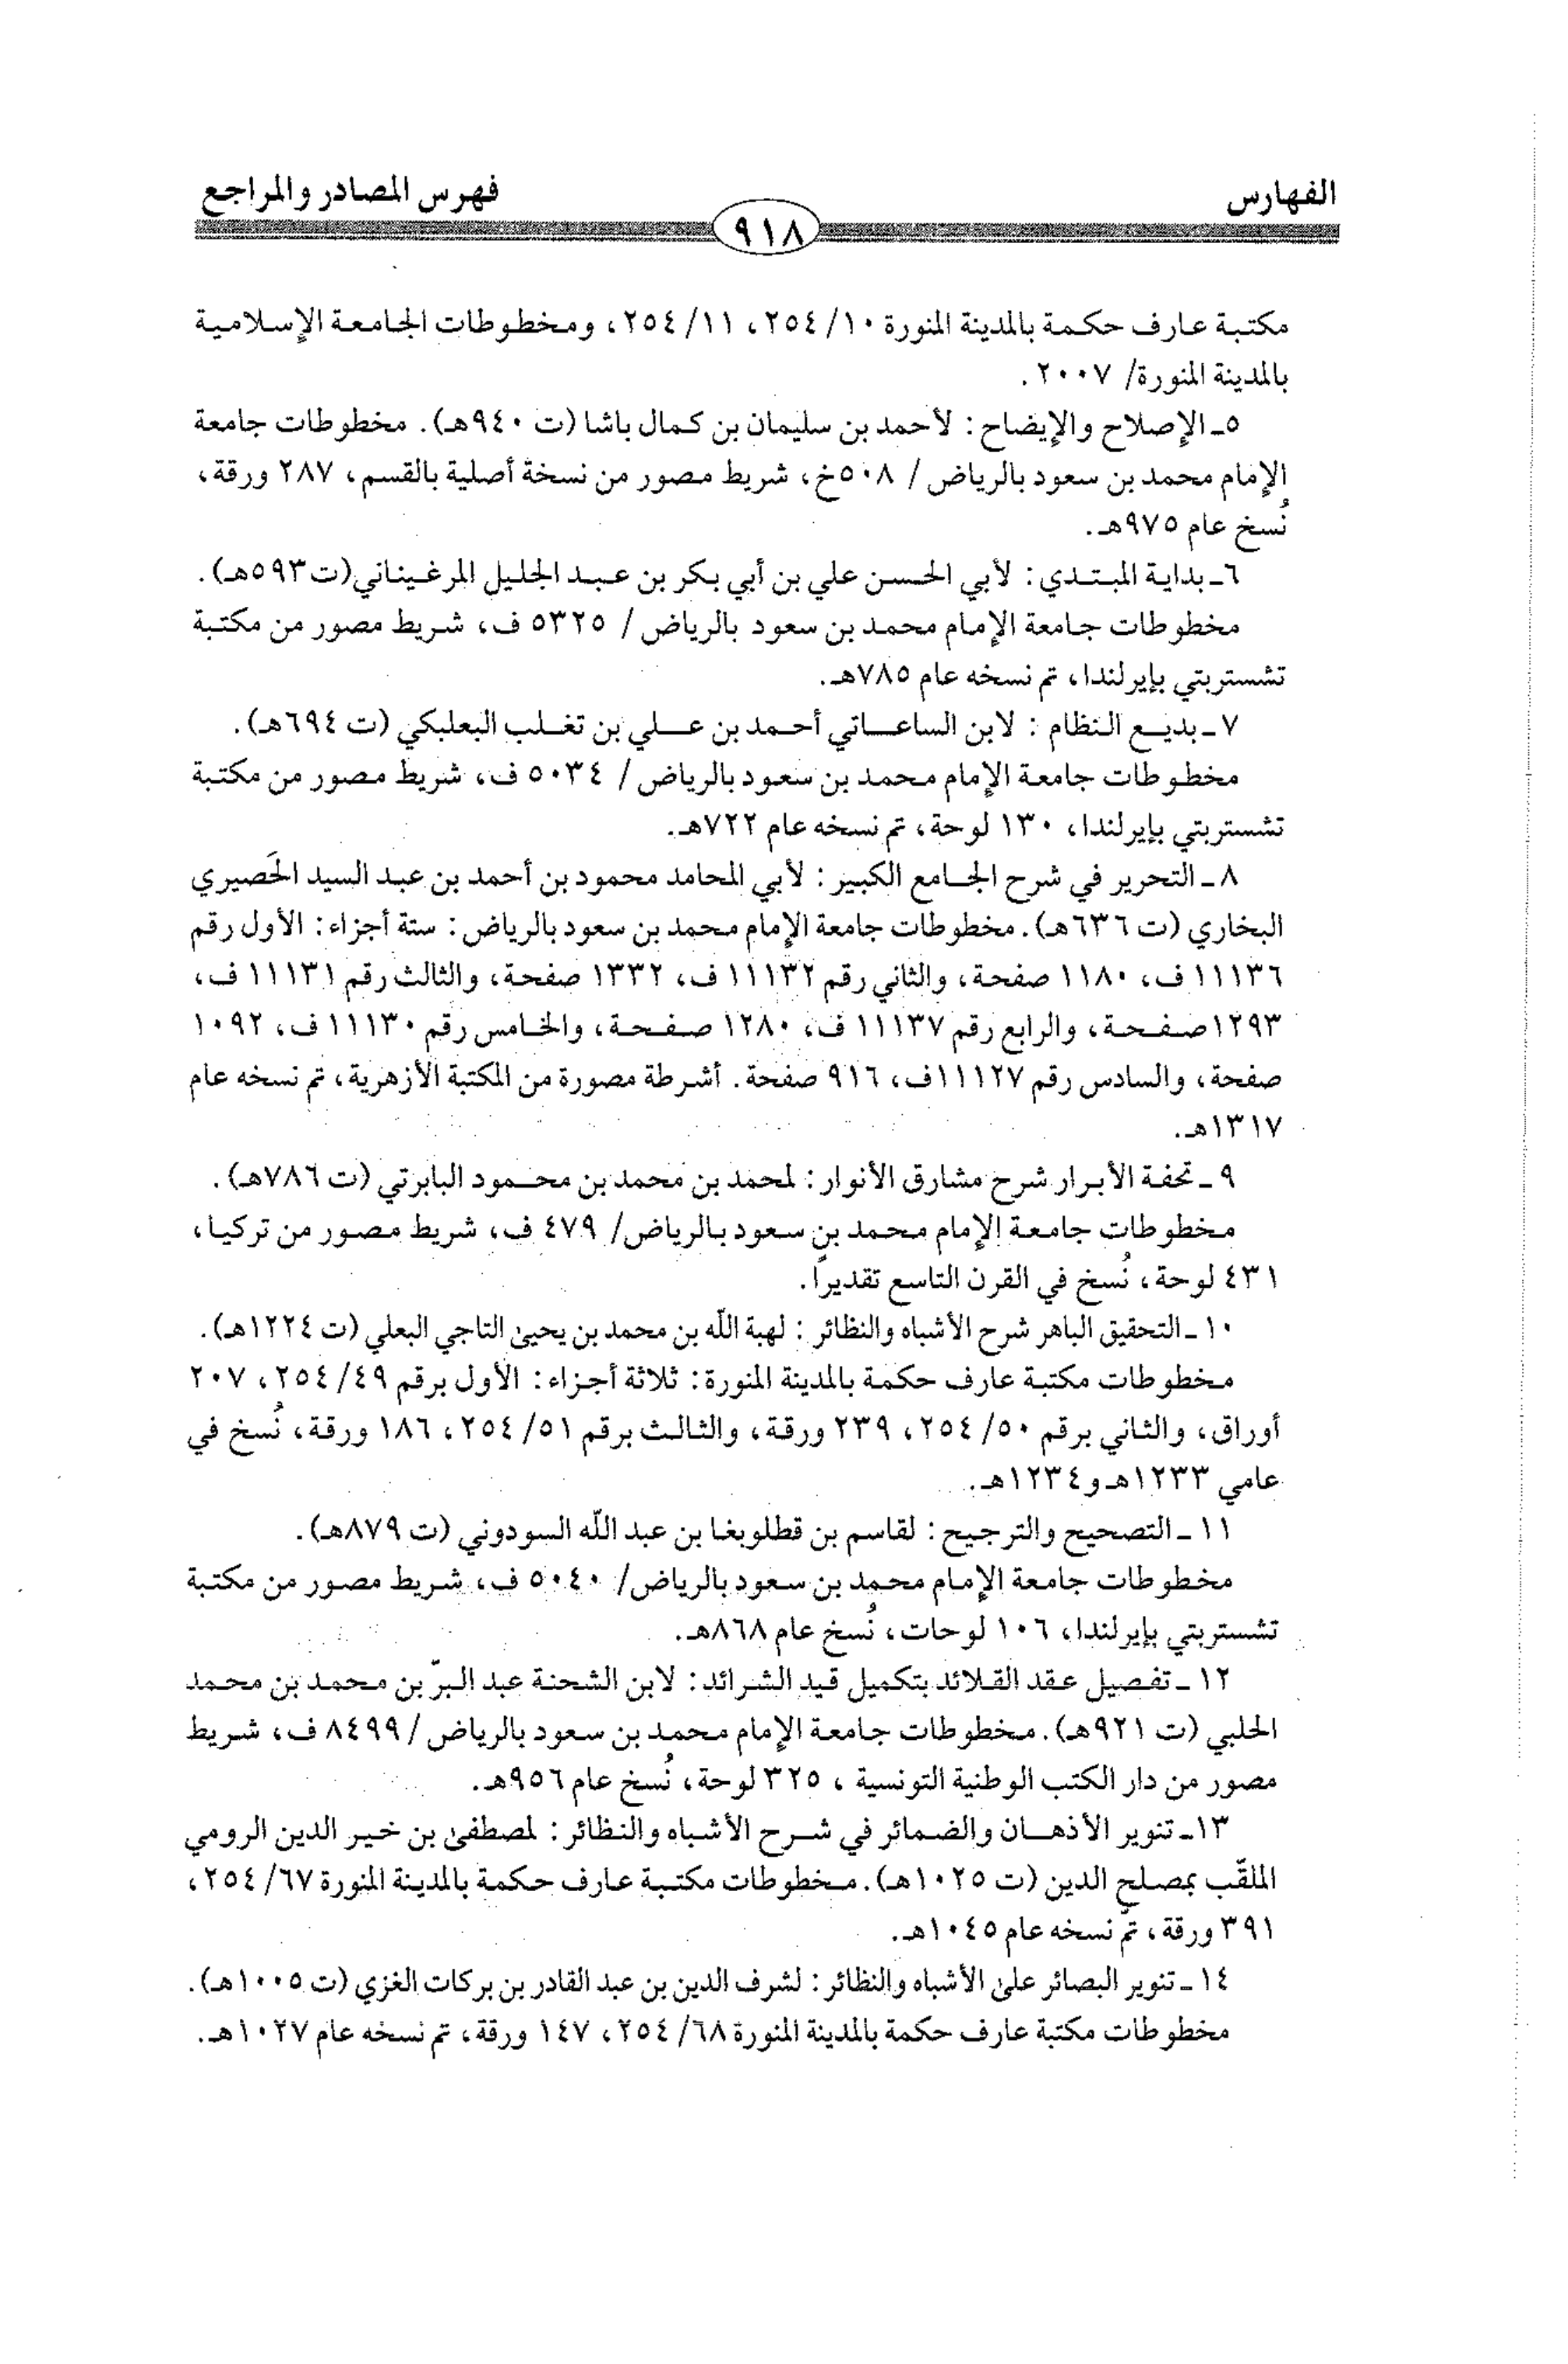 الفهارس
فهرس المصادر والمراجع
٩١٨
مكتبة عارف حكمة بالمدينة المنورة ١٠/ ٢٥٤، ١١/ ٢٥٤، ومخطوطات الجامعة الإسلامية
بالمدينة المنورة/ ٢٠٠٧.
٥ـ الإصلاح والإيضاح: لأحمد بن سليمان بن كمال باشا (ت ٩٤٠هـ). مخطوطات جامعة
الإمام محمد بن سعود بالرياض / ٥٠٨خ، شريط مصور من نسخة أصلية بالقسم، ٢٨٧ ورقة،
نُسخ عام ٩٧٥هـ.
٦ـ بداية المبتدي: لأبي الحسن علي بن أبي بكر بن عبد الجليل المرغيناني(ت٥٩٣هـ).
مخطوطات جامعة الإمام محمد بن سعود بالرياض/ ٥٣٢٥ ف، شريط مصور من مكتبة
تشستربتي بإيرلندا، تم نسخه عام ٧٨٥هـ.
٧ـ بديع النظام : لابن الساعاتي أحمد بن علي بن تغلب البعلبكي (ت ٦٩٤هـ).
مخطوطات جامعة الإمام محمد بن سعود بالرياض/ ٥٠٣٤ ف، شريط مصور من مكتبة
تشستربتي بإيرلندا، ١٣٠ لوحة، تم نسخه عام ٧٢٢هـ.
٨ ـ التحرير في شرح الجامع الكبير: لأبي المحامد محمود بن أحمد بن عبد السيد الحَصيري
البخاري (ت ٦٣٦هـ). مخطوطات جامعة الإمام محمد بن سعود بالرياض: ستة أجزاء: الأول رقم
١١١٣٦ ف، ١١٨٠ صفحة، والثاني رقم ١١١٣٢ ف، ١٣٣٢ صفحة، والثالث رقم ١١١٣١ ف،
١٢٩٣صفحة، والرابع رقم ١١١٣٧ ف، ١٢٨٠ صفحة، والخامس رقم ١١١٣٠ ف، ١٠٩٢
صفحة، والسادس رقم ١١١٢٧ف، ٩١٦ صفحة. أشرطة مصورة من المكتبة الأزهرية، تم نسخه عام
١٣١٧هـ.
٩ ـ تحفة الأبرار شرح مشارق الأنوار: لمحمد بن محمد بن محمود البابرتي (ت ٧٨٦هـ).
مخطوطات جامعة الإمام محمد بن سعود بالرياض/ ٤٧٩ ف، شريط مصور من تركيا،
٤٣١ لوحة، نُسخ في القرن التاسع تقديراً.
١٠ ـ التحقيق الباهر شرح الأشباه والنظائر: لهبة اللّه بن محمد بن يحيىٰ التاجي البعلي (ت ١٢٢٤هـ).
مخطوطات مكتبة عارف حكمة بالمدينة المنورة: ثلاثة أجزاء: الأول برقم ٤٩/ ٢٥٤، ٢٠٧
أوراق، والثاني برقم ٥٠/ ٢٥٤، ٢٣٩ ورقة، والثالث برقم ٥١/ ٢٥٤، ١٨٦ ورقة، نُسخ في
عامي ١٢٣٣هـ و١٢٣٤هـ.
١١ ـ التصحيح والترجيح: لقاسم بن قطلوبغا بن عبد اللّه السودوني (ت ٨٧٩هـ).
مخطوطات جامعة الإمام محمد بن سعود بالرياض/ ٥٠٤٠ ف، شريط مصور من مكتبة
تشستربتي بإيرلندا، ١٠٦ لوحات، نُسخ عام ٨٦٨هـ.
١٢ ـ تفصيل عقد القلائد بتكميل قيد الشرائد: لابن الشحنة عبد البرّ بن محمد بن محمد
الحلبي (ت ٩٢١هـ). مخطوطات جامعة الإمام محمد بن سعود بالرياض/ ٨٤٩٩ ف، شريط
مصور من دار الكتب الوطنية التونسية ، ٣٢٥ لوحة، نُسخ عام ٩٥٦هـ.
١٣ـ تنوير الأذهان والضمائر في شرح الأشباه والنظائر: لمصطفىٰ بن خير الدين الرومي
الملقّب بمصلح الدين (ت ١٠٢٥هـ). مخطوطات مكتبة عارف حكمة بالمدينة المنورة ٦٧/ ٢٥٤،
٣٩١ ورقة، تمّ نسخه عام ١٠٤٥هـ.
١٤ ـ تنوير البصائر علىٰ الأشباه والنظائر: لشرف الدين بن عبد القادر بن بركات الغزي (ت ١٠٠٥هـ).
مخطوطات مكتبة عارف حكمة بالمدينة المنورة ٦٨/ ٢٥٤، ١٤٧ ورقة، تم نسخه عام ١٠٢٧هـ.